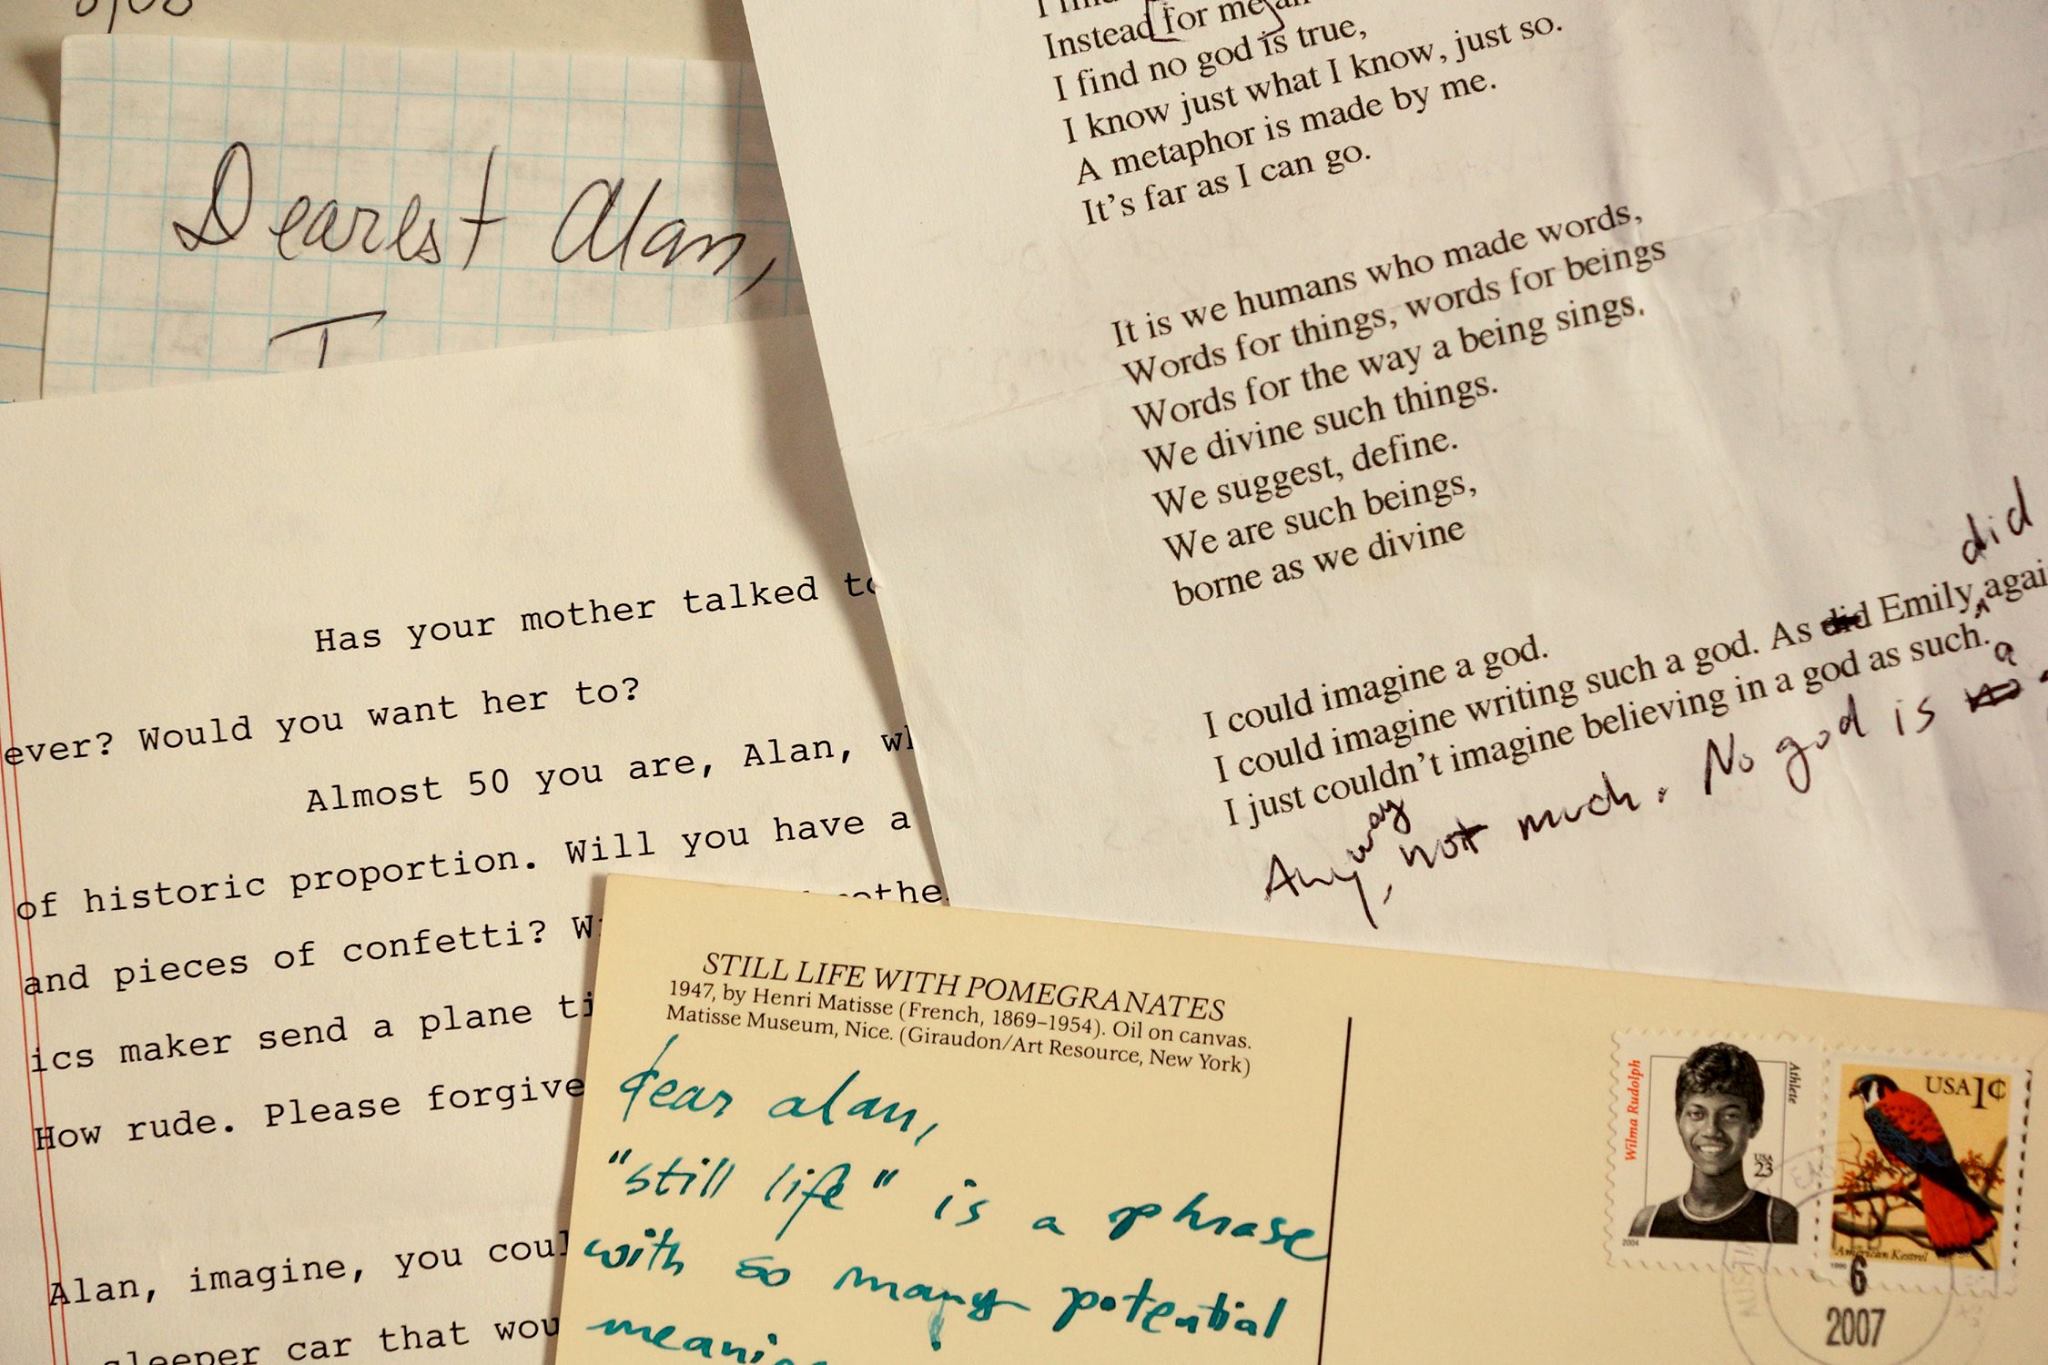 Dearest Alan,
I
Instead for me
I find no god is true,
I know just what I know, just so.
A metaphor is made by me.
It's far as I can go.
It is we humans who made words,
Words for things, words for beings
Words for the way a being sings.
We divine such things.
We suggest, define.
We are such beings,
borne as we divine
I could imagine a god.
did
I could imagine writing such a god. As did Emily, agai
I just couldn't imagine believing in a god as such.
a
Anyway, not much. No god is no
Has your mother talked to
ever? Would you want her to?
Almost 50 you are, Alan, wh
of historic proportion. Will you have a
and pieces of confetti? W
ics maker send a plane ti
How rude. Please forgive
Alan, imagine, you coul
sleeper car that wou
STILL LIFE WITH POMEGRANATES
1947, by Henri Matisse (French, 1869–1954). Oil on canvas.
Matisse Museum, Nice. (Giraudon/Art Resource, New York)
dear alan,
"still life" is a phrase
with so many potential
meani
Wilma Rudolph
Athlete
USA
23
2004
USA 1¢
American Kestrel
6
2007